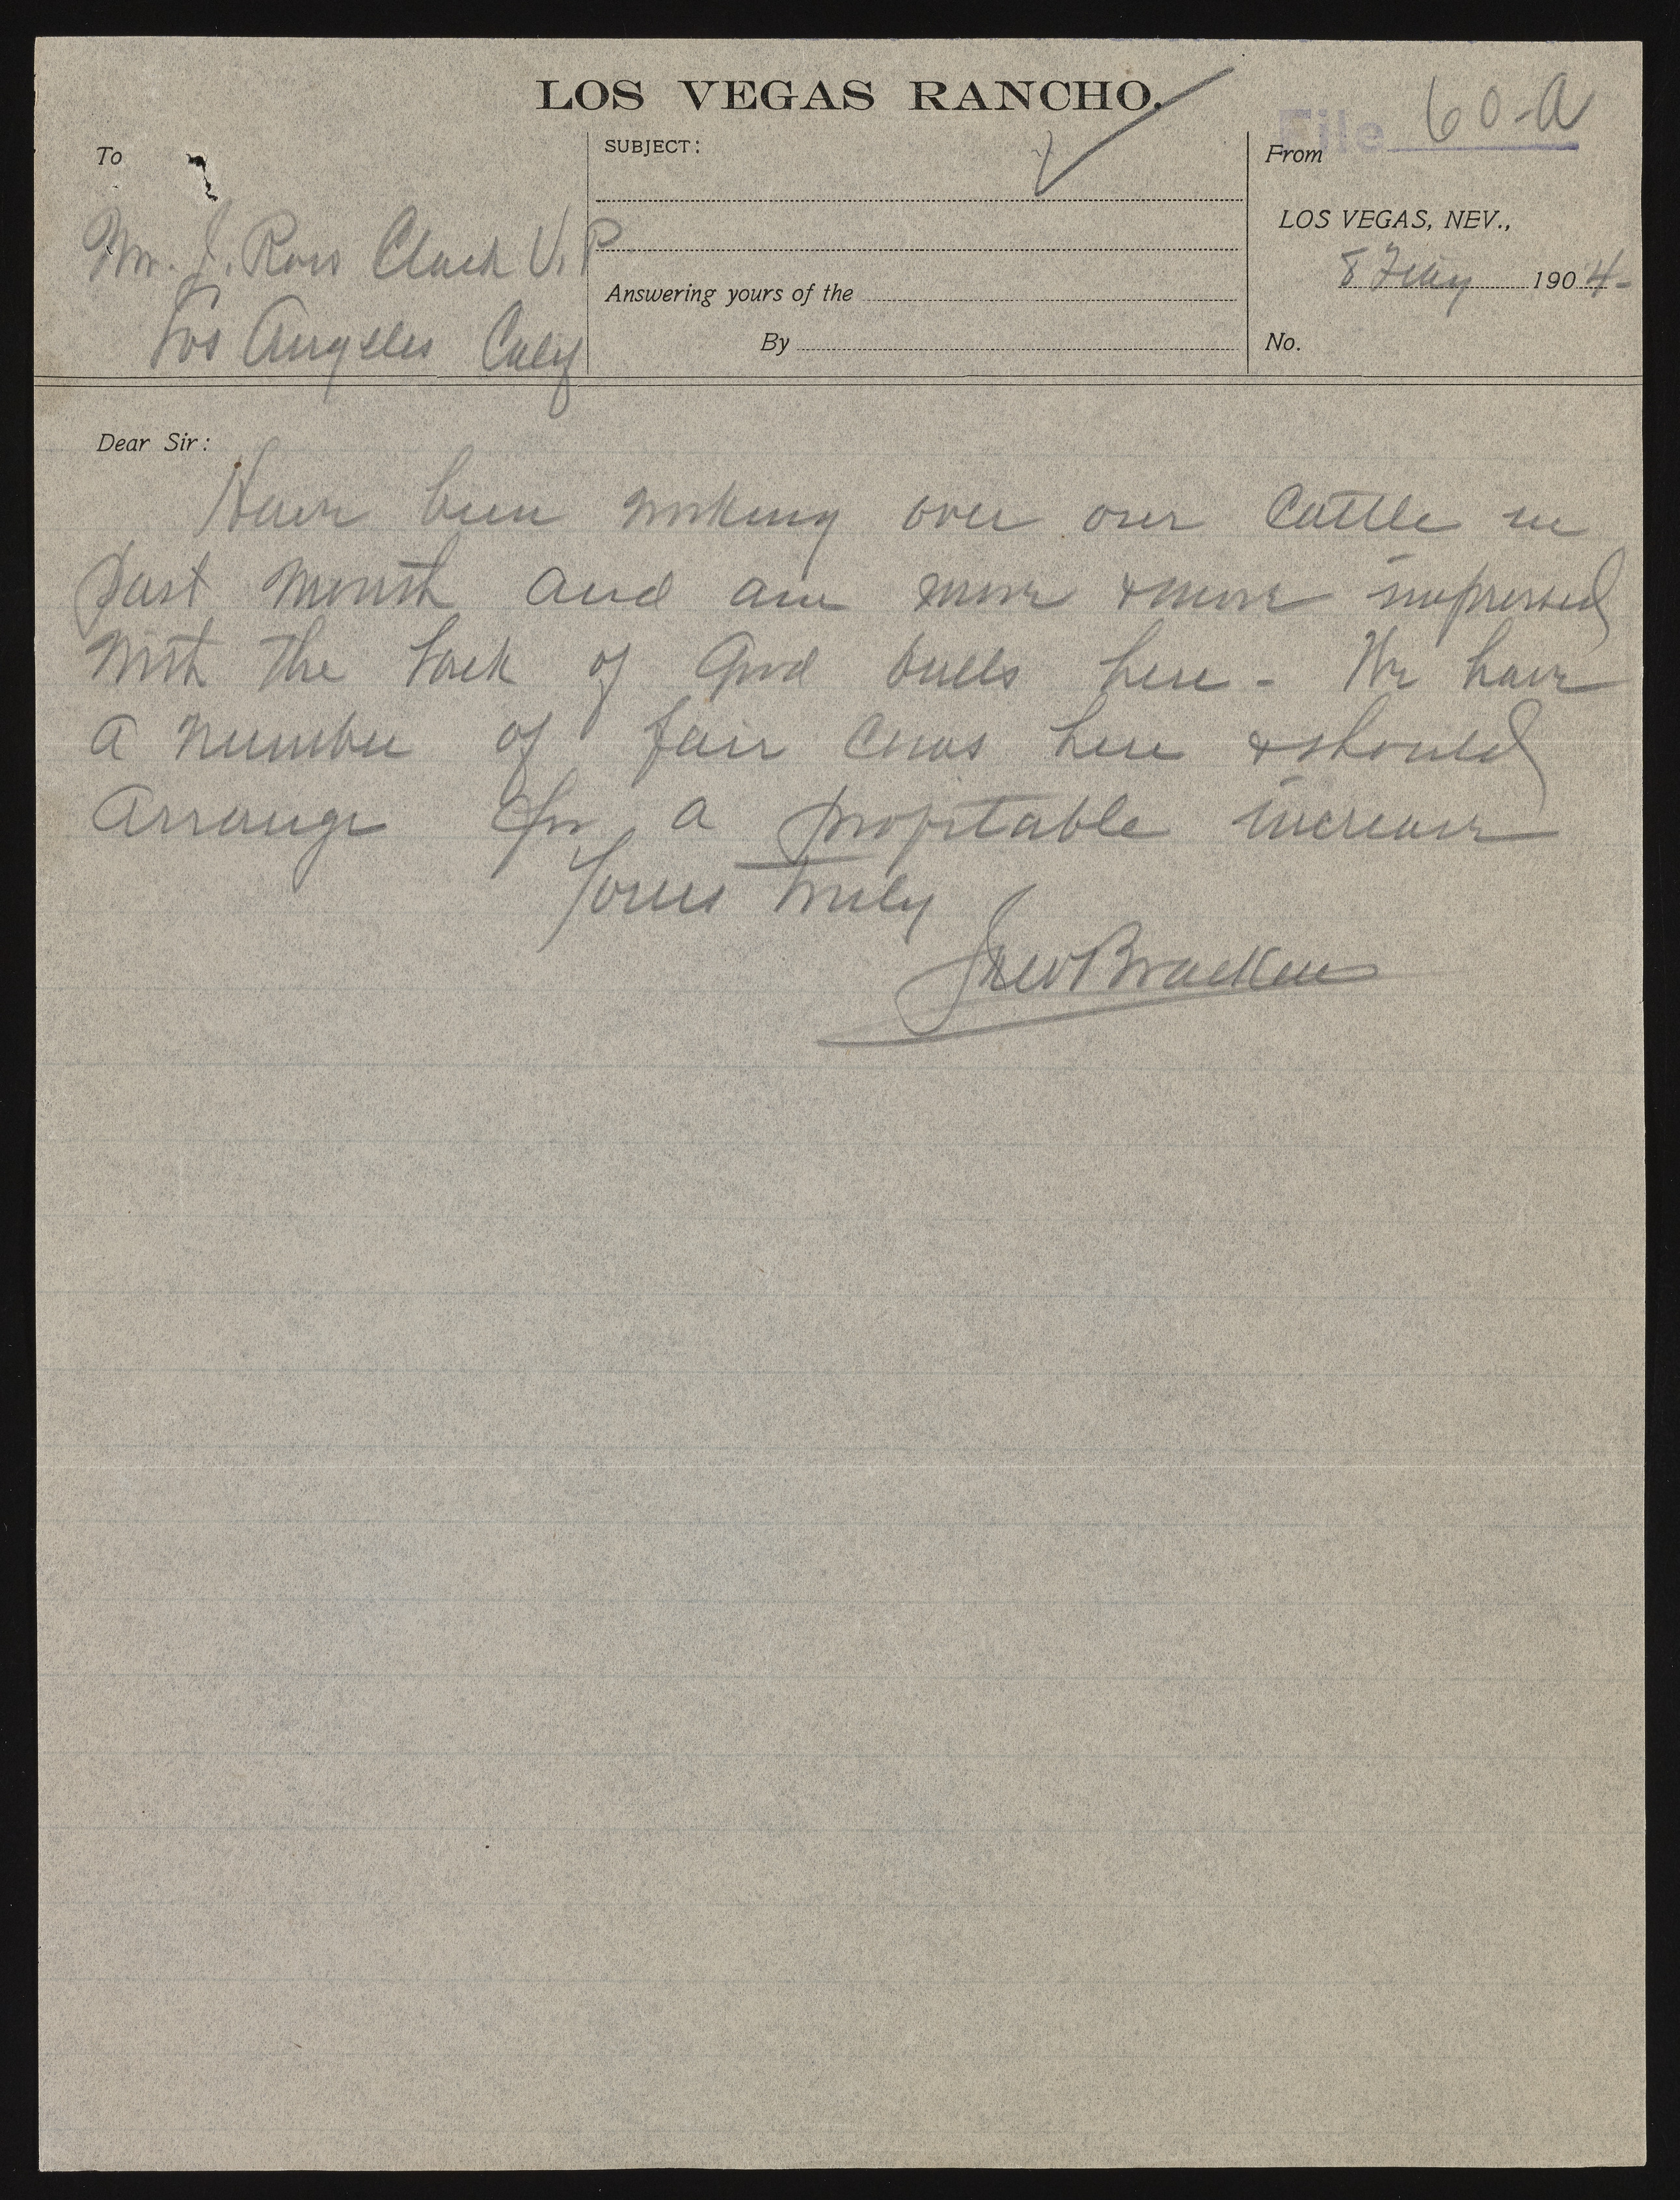 LOS VEGAS RANCHO.
File 60-A
To
SUBJECT:
From
Mr. J. Ross Clark V.P
Los Angeles Calif
LOS VEGAS, NEV.,
8 May 1904-
Answering yours of the
By
No.
Dear Sir:
Have been working over our Cattle in
past month and am more & more impressed
with the lack of Good bulls here - We have
a number of fair cows here & should
arrange for a profitable increase
Yours truly
Walter Bracken